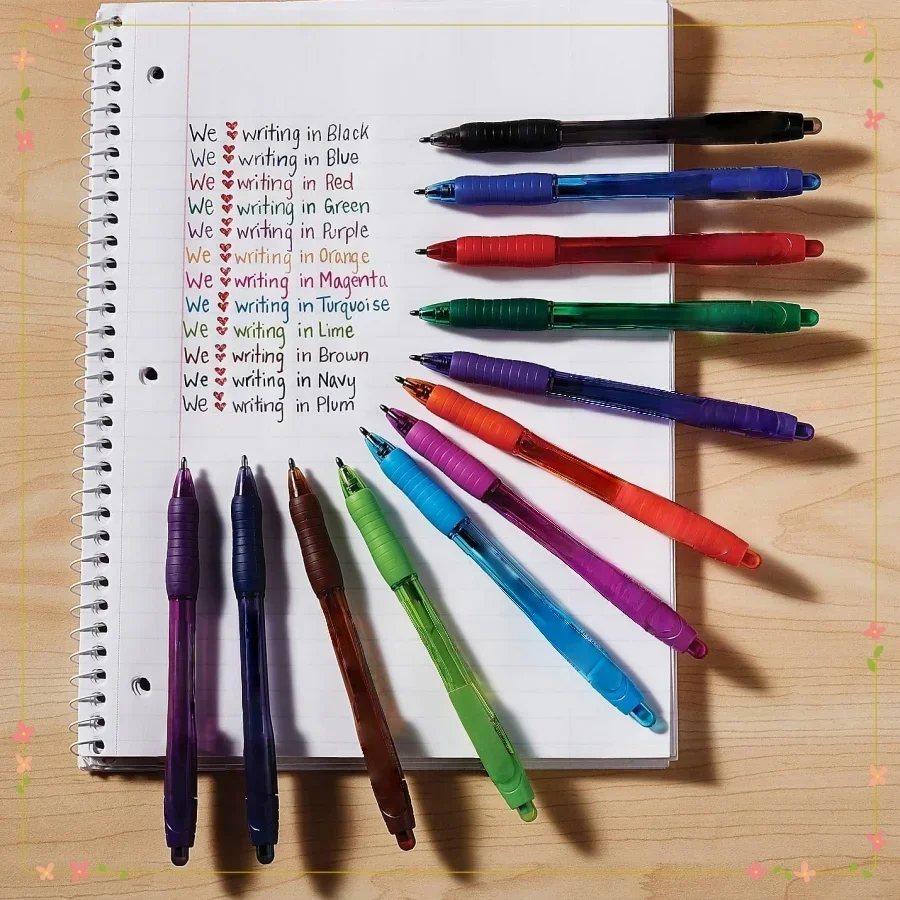 We ♥ writing in Black
We ♥ writing in Blue
We ♥ writing in Red
We ♥ writing in Green
We ♥ writing in Purple
We ♥ writing in Orange
We ♥ writing in Magenta
We ♥ writing in Turquoise
We ♥ writing in Lime
We ♥ writing in Brown
We ♥ writing in Navy
We ♥ writing in Plum